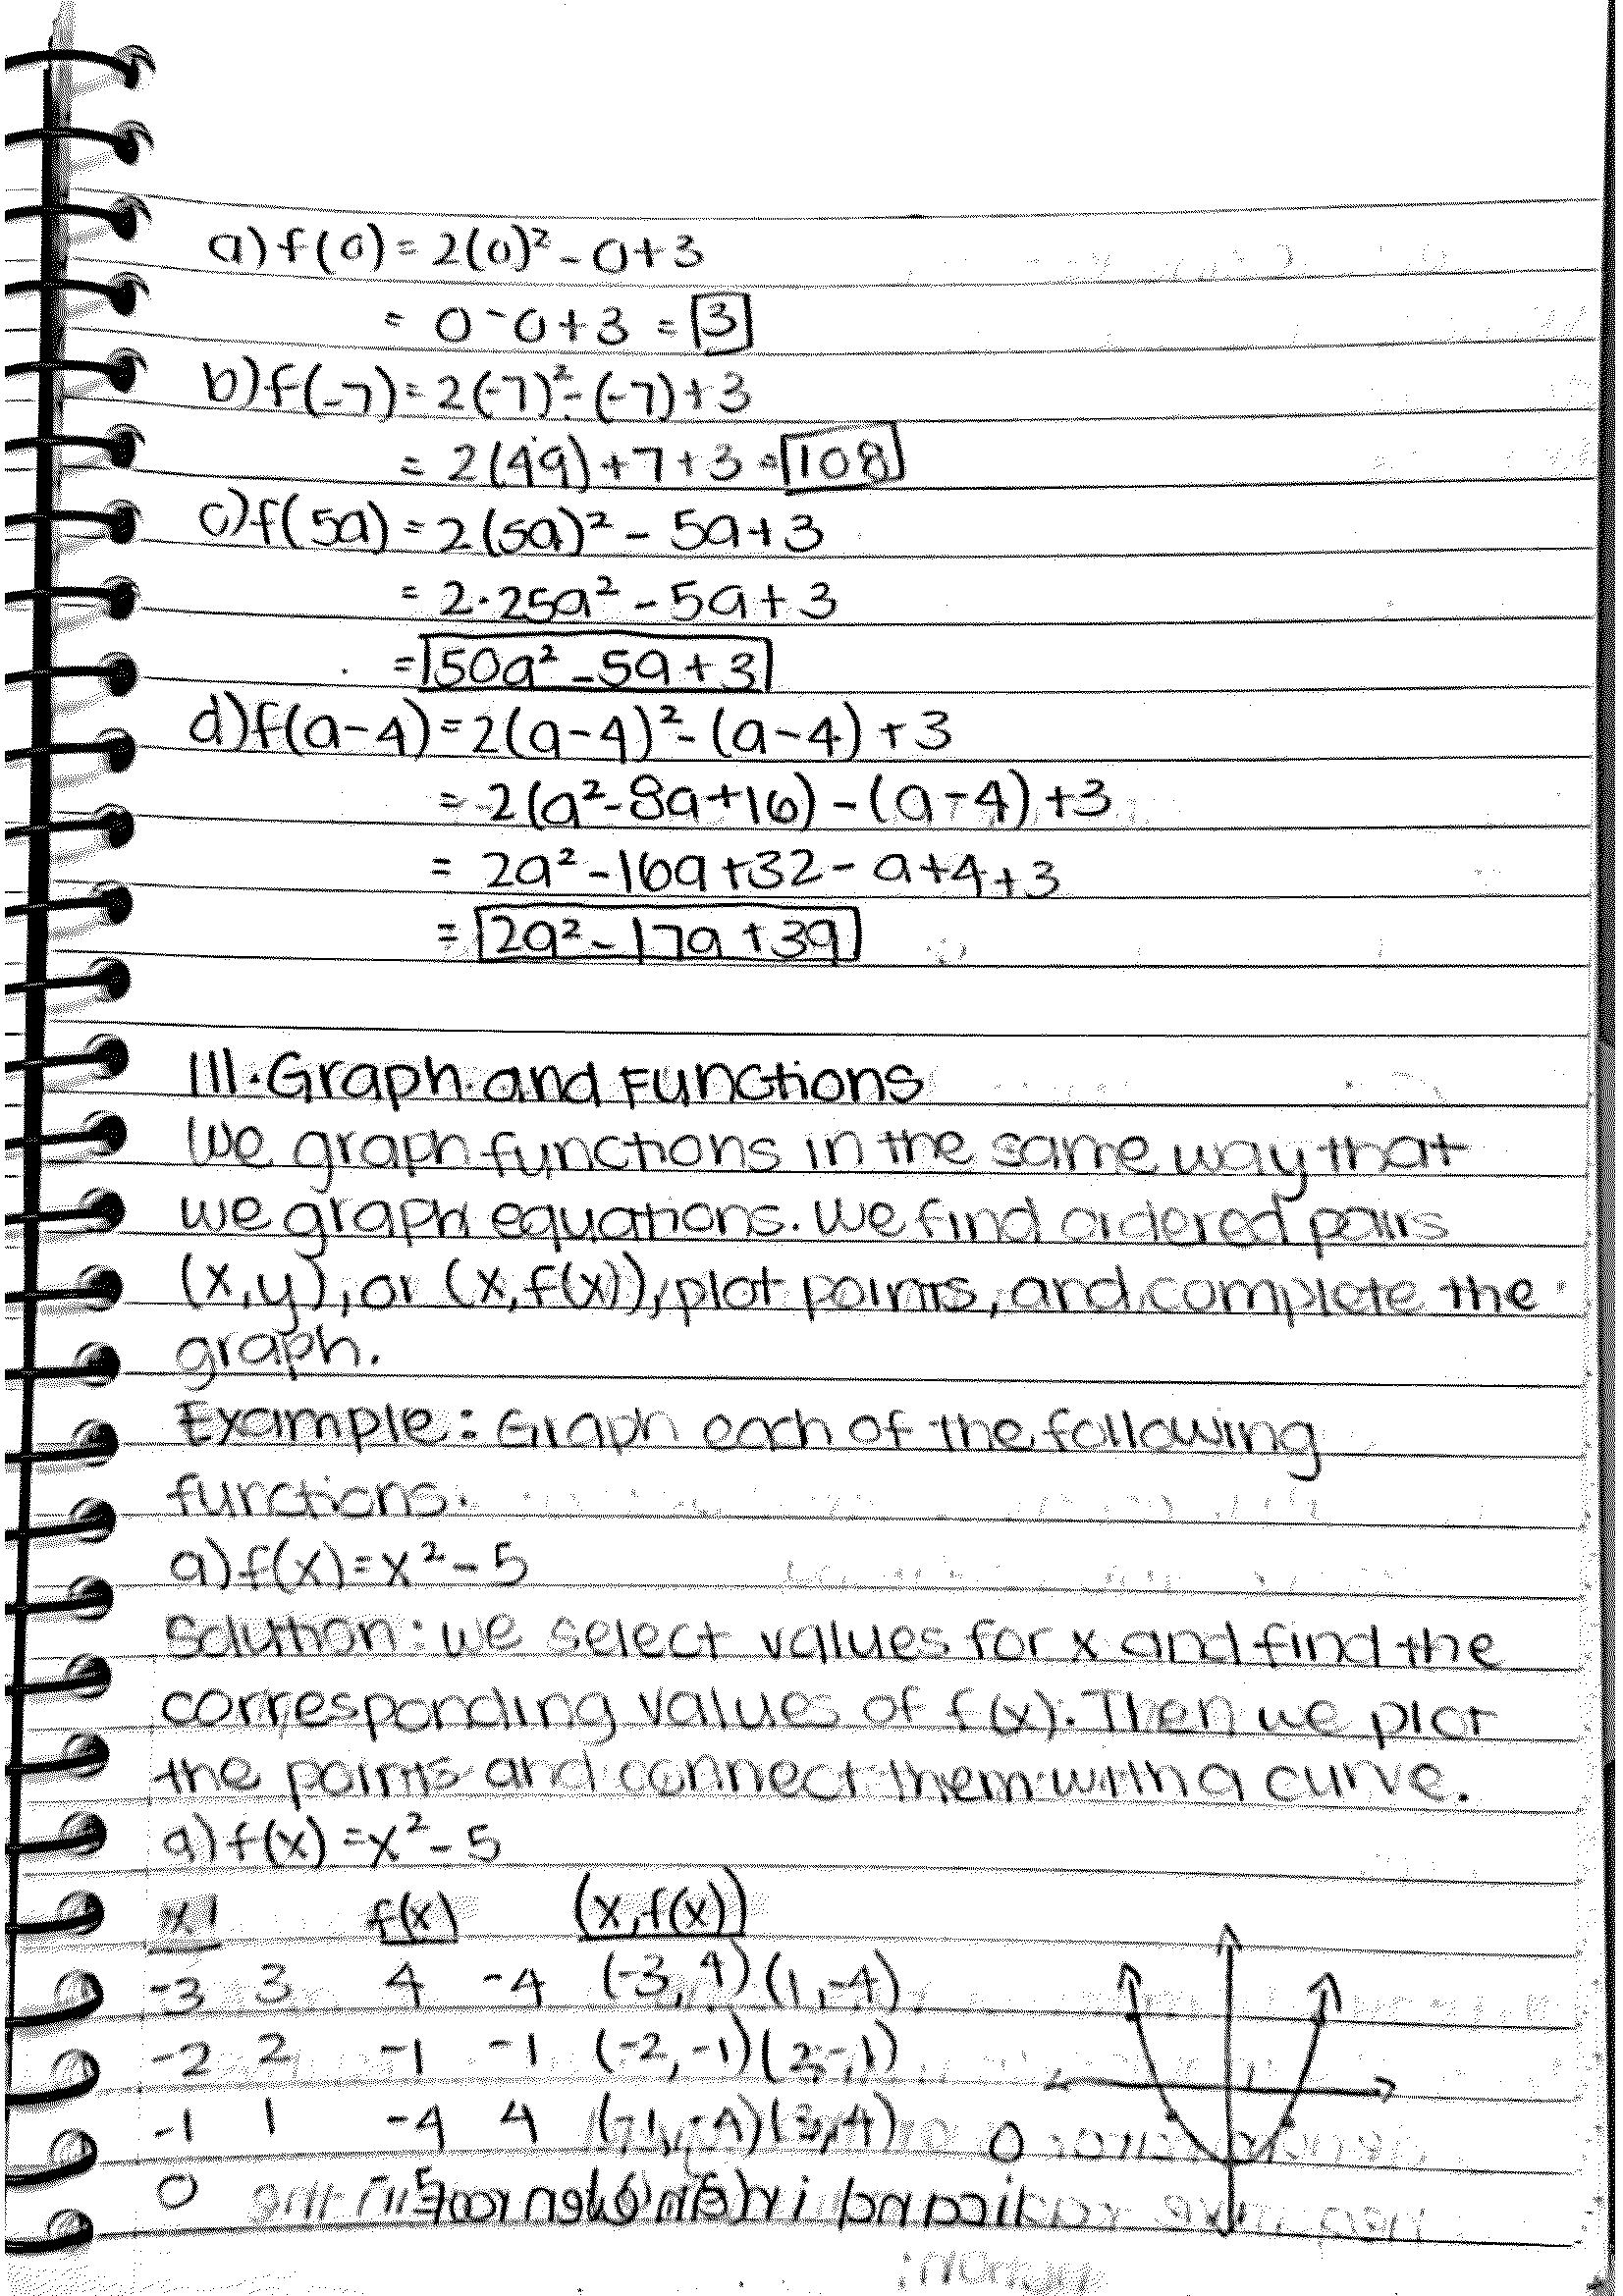 a) f(0) = 2(0)² - 0 + 3
= 0 - 0 + 3 = 3
b) f(-7) = 2(-7)² - (-7) + 3
= 2(49) + 7 + 3 = 108
c) f(5a) = 2(5a)² - 5a + 3
= 2·25a² - 5a + 3
= 50a² - 5a + 3
d) f(a-4) = 2(a-4)² - (a-4) + 3
= 2(a²-8a+16) - (a-4) + 3
= 2a² - 16a + 32 - a + 4 + 3
= 2a² - 17a + 39
III. Graph and Functions
We graph functions in the same way that
we graph equations. We find ordered pairs
(x,y), or (x,f(x)), plot points, and complete the
graph.
Example: Graph each of the following
functions.
a) f(x) = x² - 5
Solution: We select values for x and find the
corresponding values of f(x). Then we plot
the points and connect them with a curve.
a) f(x) = x² - 5
x f(x) (x,f(x))
-3 3 4 -4 (-3, 4) (1, -4)
-2 2 -1 -1 (-2, -1) (2, -1)
-1 1 -4 4 (-1, -4) (3, 4)
0